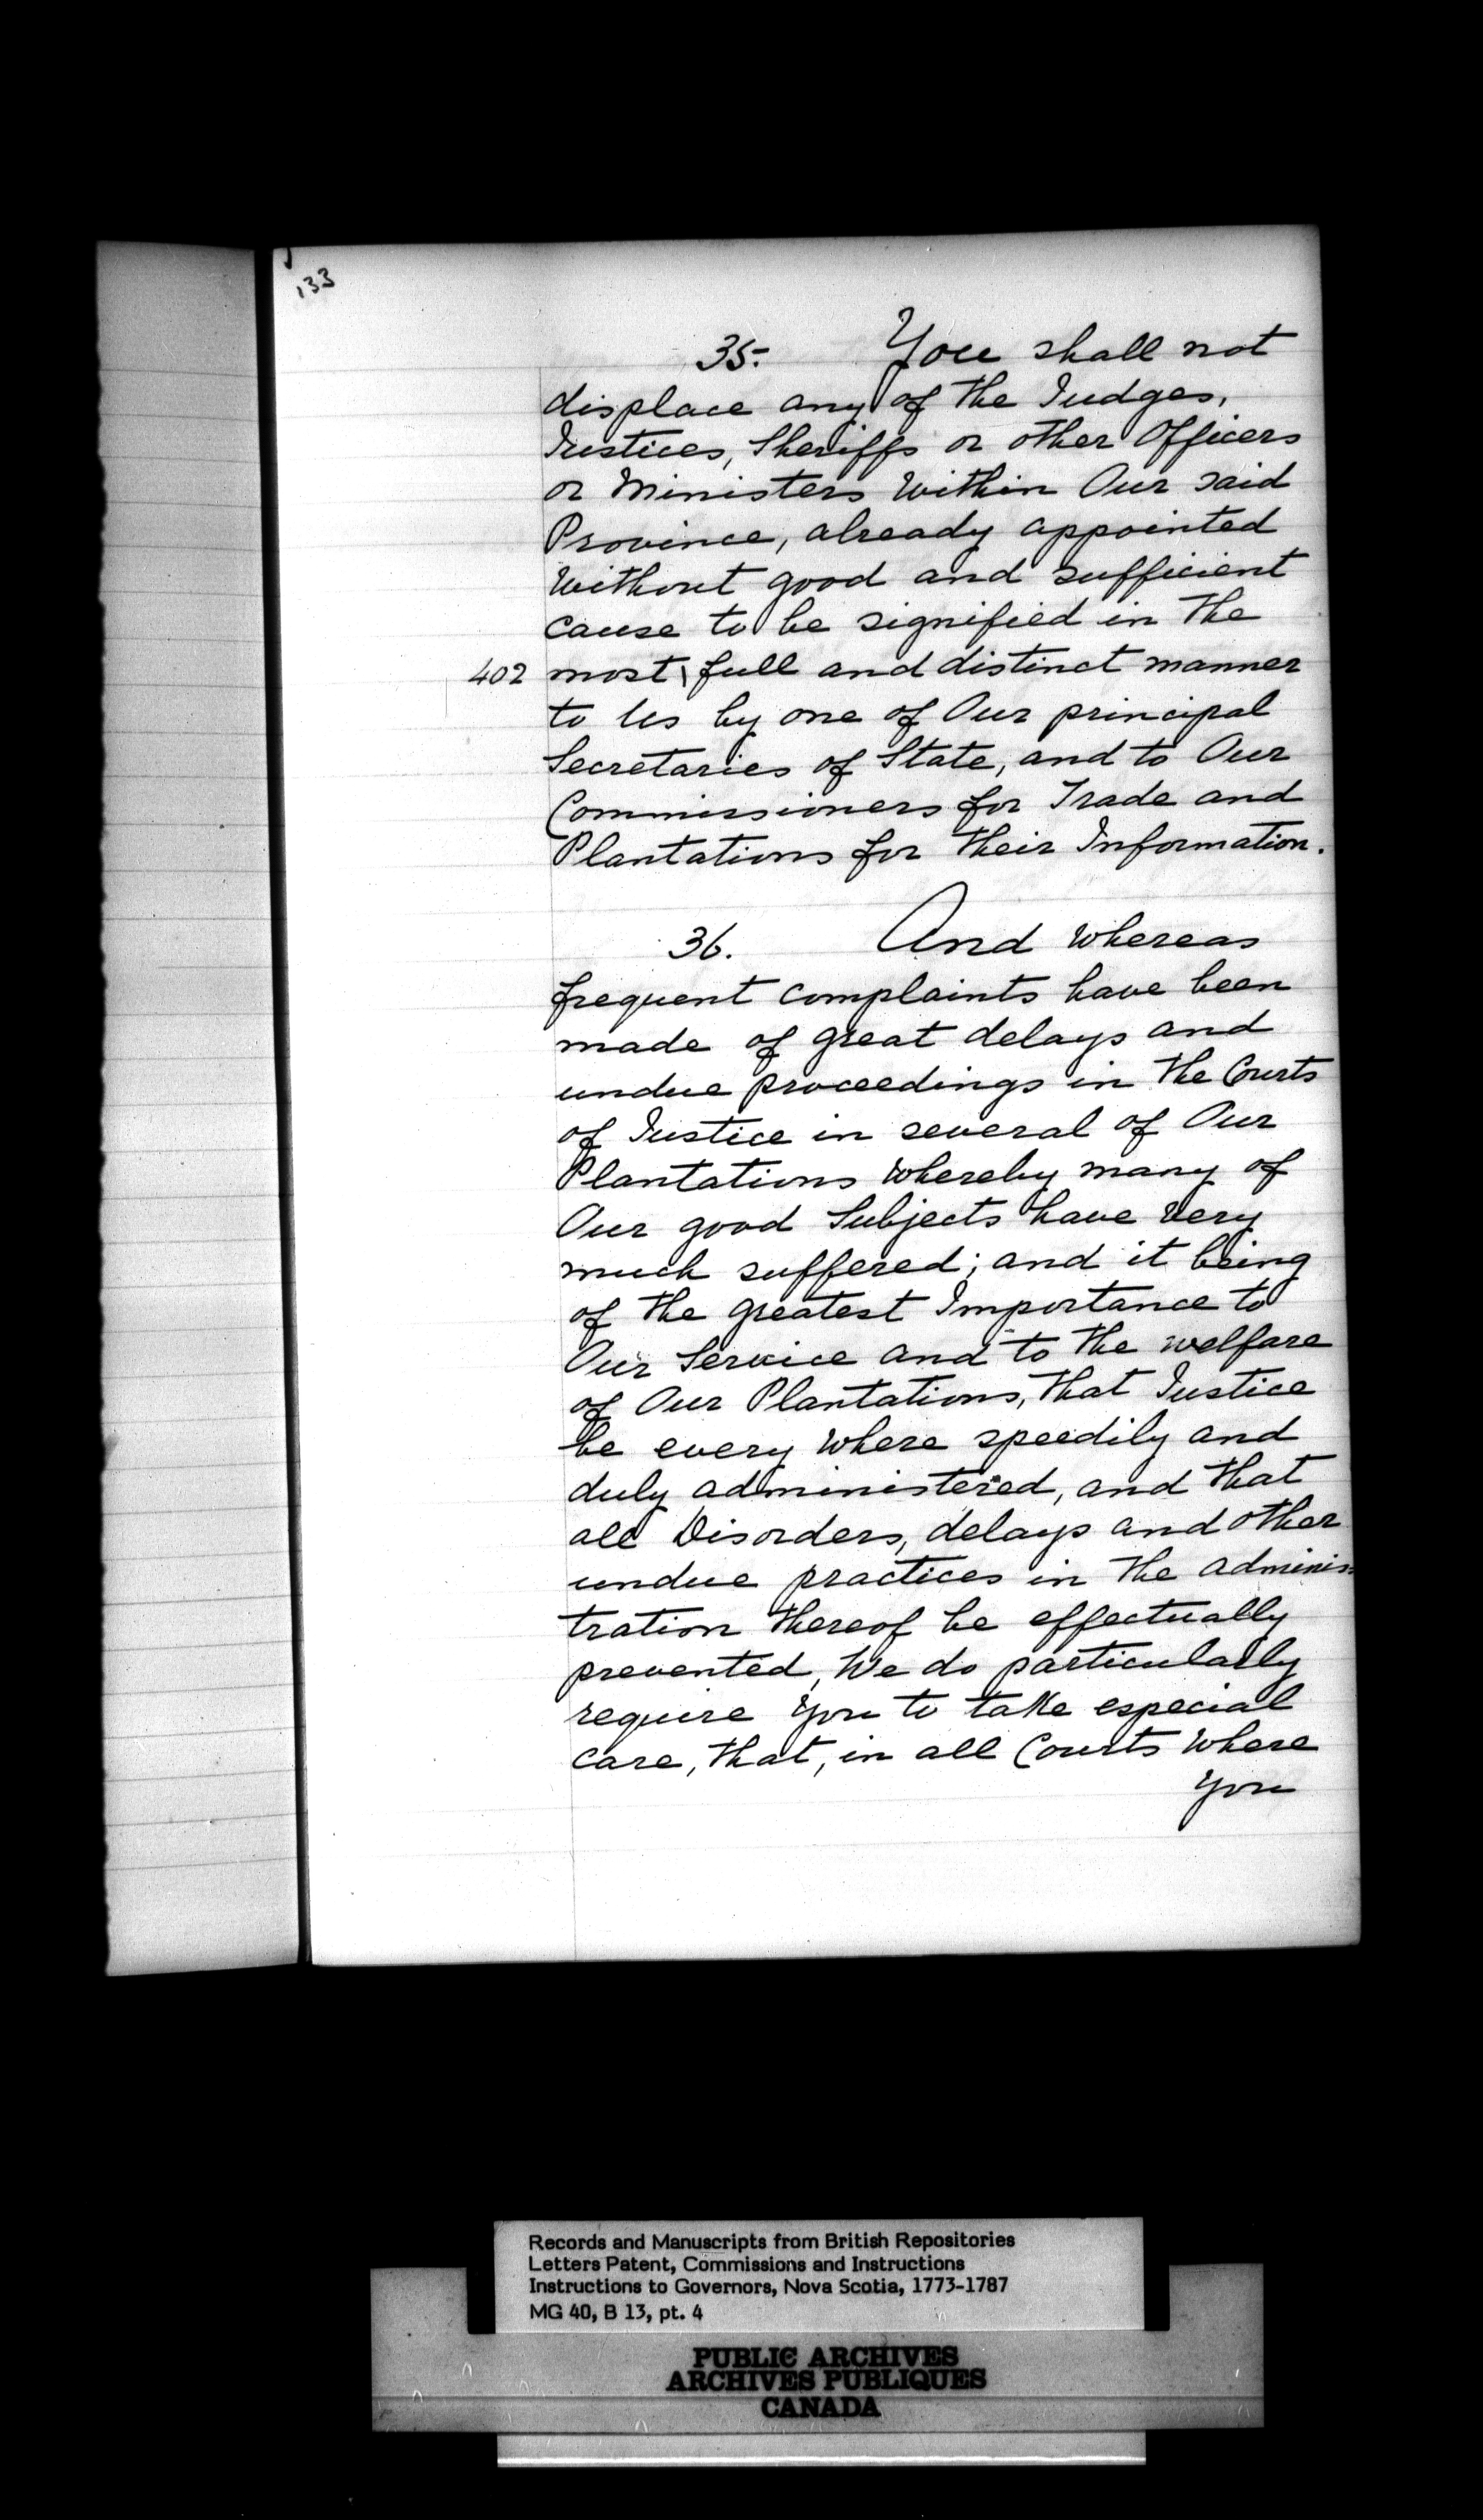 133
35. You shall not
displace any of the Judges,
Justices, Sheriffs or other Officers
or Ministers Within Our said
Province, already appointed
Without good and sufficient
cause to be signified in the
402 most \ full and distinct manner
to Us by one of Our principal
Secretaries of State, and to Our
Commissioners for Trade and
Plantations for their Information.
36. And Whereas
frequent complaints have been
made of great delays and
undue proceedings in the Courts
of Justice in several of Our
Plantations Whereby many of
Our good Subjects have very
much suffered; and it being
of the greatest Importance to
Our Service and to the welfare
of Our Plantations, that Justice
be every Where speedily and
duly administered, and that
all Disorders, delays and other
undue practices in the adminis=
tration thereof be effectually
prevented, We do particularly
require You to take especial
care, that, in all Courts Where
You
Records and Manuscripts from British Repositories
Letters Patent, Commissions and Instructions
Instructions to Governors, Nova Scotia, 1773-1787
MG 40, B 13, pt. 4
PUBLIC ARCHIVES
ARCHIVES PUBLIQUES
CANADA